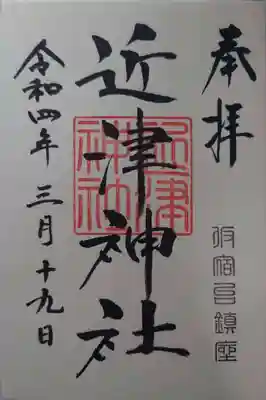 奉拝
板宿邑鎮座
近津神社
近津神社
令和四年三月十九日